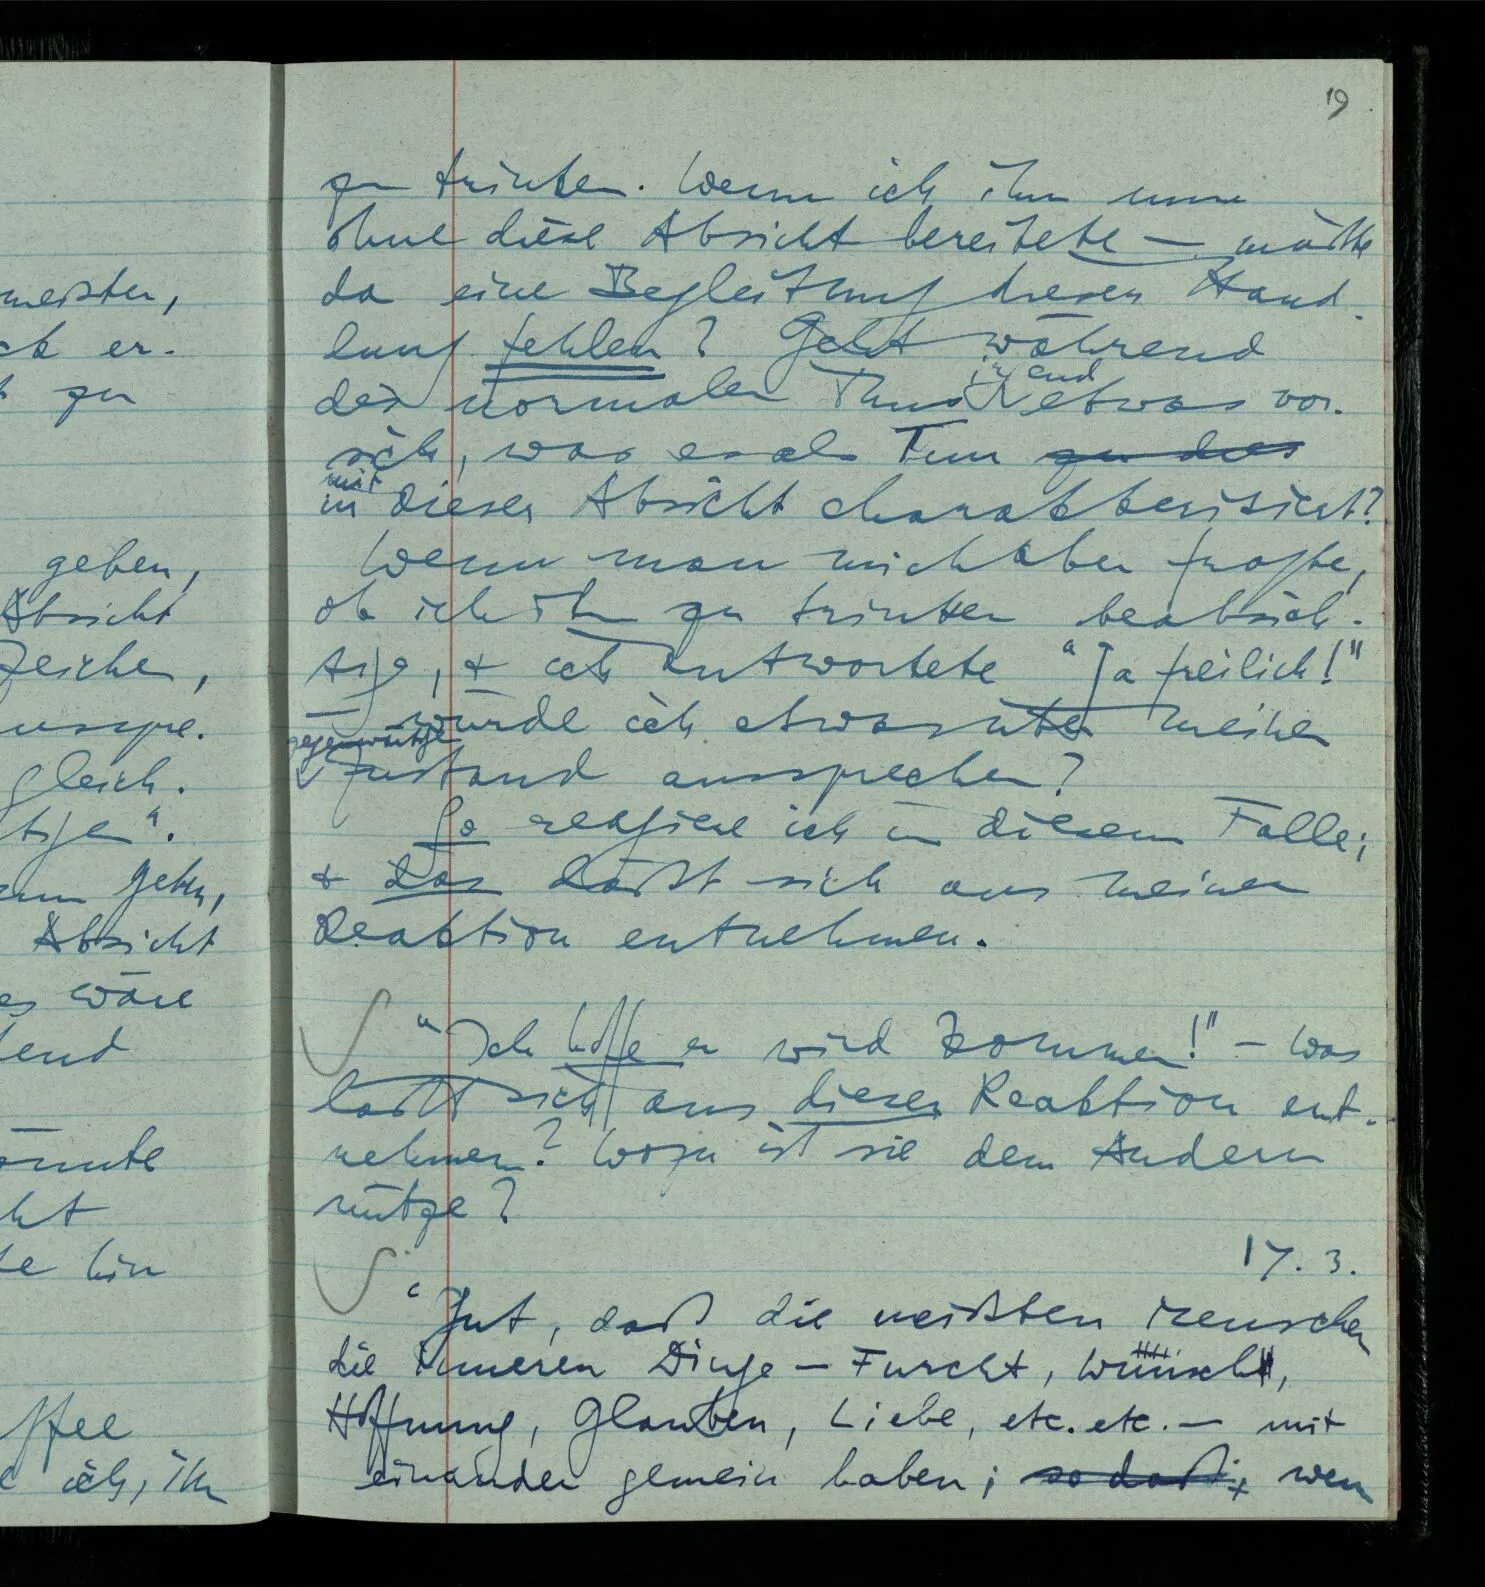 19
zu trinken. Wenn ich ihn nun
ohne diese Absicht bereitete — müßte
da eine Begleitung dieser Hand-
lung fehlen? Geht während
des normalen Thuns irgend etwas vor
sich, was es als Tun zu dies
in mit dieser Absicht charakterisiert?
Wenn man mich aber fragte,
ob ich ihn zu trinken beabsich-
tige, & ich antwortete "Ja freilich!"
— würde ich etwas über meinen
gegenwärtigen Zustand aussprechen?
So reagiere ich in diesem Falle;
& das läßt sich aus meiner
Reaktion entnehmen.
"Ich hoffe er wird kommen!" – Was
läßt sich aus dieser Reaktion ent-
nehmen? Wozu ist sie dem Andern
nütze?
17. 3.
Gut, daß die meißten Menschen
die inneren Dinge – Furcht, Wunsch,
Hoffnung, Glauben, Liebe, etc. etc. – mit
einander gemein haben; so daß & wenn
meisten,
ck er-
t zu
geben,
Absicht
Zeichen,
ausspre-
gleich.
zum Gehen,
Absicht
es wäre
könnte
te hin
ich, ihn